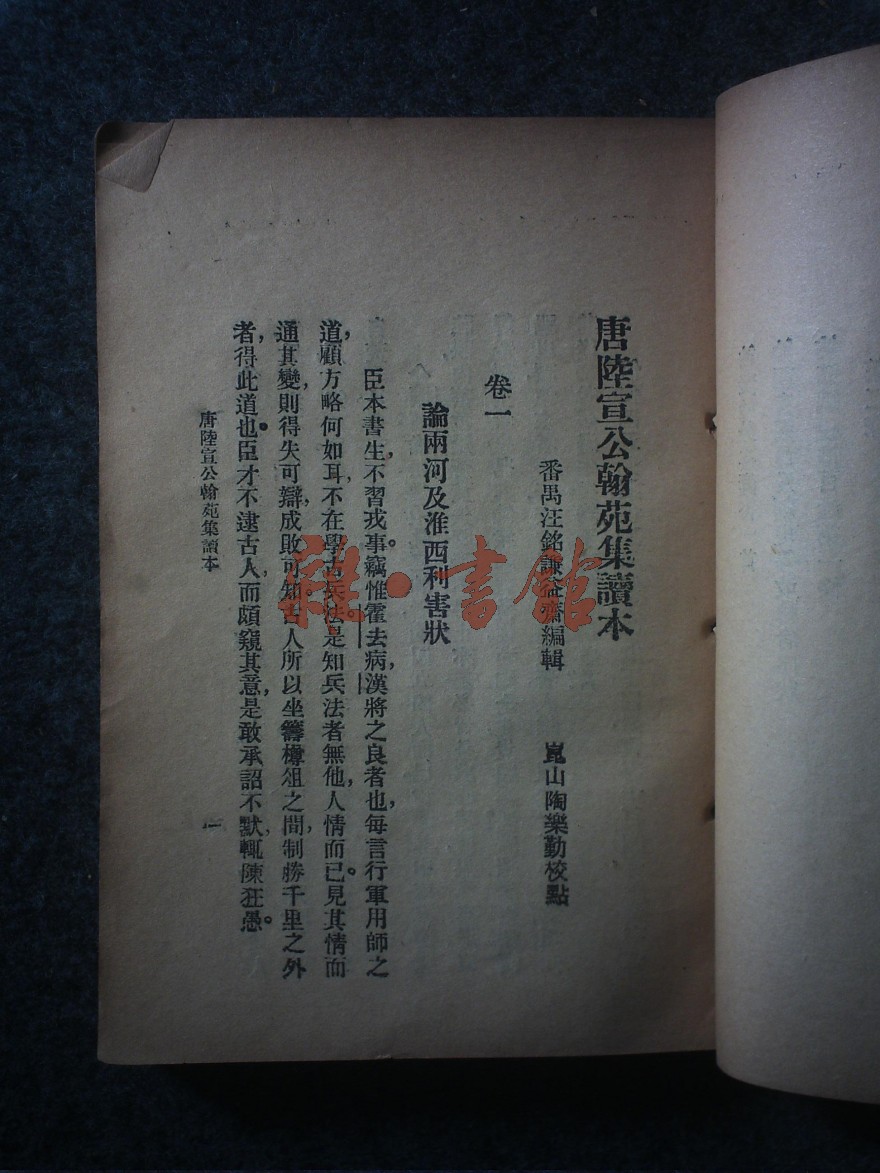 唐陸宣公翰苑集讀本
番禺汪銘謙益齋編輯　崑山陶樂勤校點
卷一
論兩河及淮西利害狀
臣本書生,不習戎事。竊惟霍去病,漢將之良者也,每言行軍用師之
道,顧方略何如耳,不在學古兵法。是知兵法者無他,人情而已。見其情而
通其變,則得失可辯,成敗可知。古人所以坐籌樽俎之間,制勝千里之外
者,得此道也。臣才不逮古人,而頗窺其意,是敢承詔不默,輒陳狂愚。
唐陸宣公翰苑集讀本
一
雜·書館